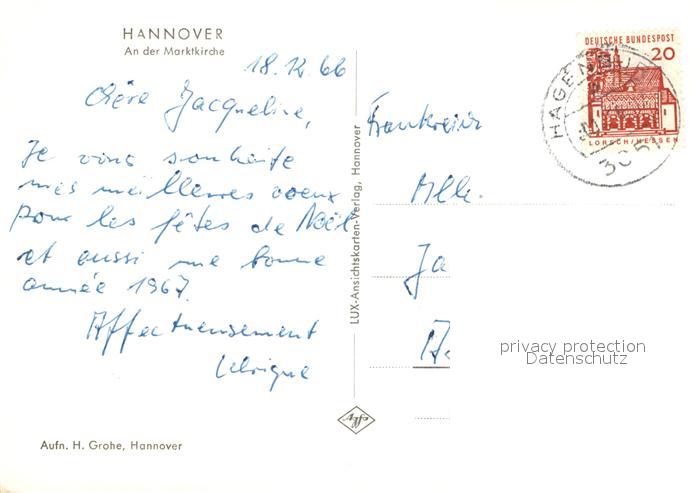 HANNOVER
An der Marktkirche
18.12.66
Chère Jacqueline,
Je vous souhaite
mes meilleures voeux
pour les fêtes de Noël
et aussi une bonne
année 1967.
Affectueusement
Ulrique
Aufn. H. Grohe, Hannover
LUX-Ansichtskarten-Verlag, Hannover
Frankreich
Mlle.
Ja
DEUTSCHE BUNDESPOST
20
LORSCH/HESSEN
HAGENBURG
305
privacy protection
Datenschutz